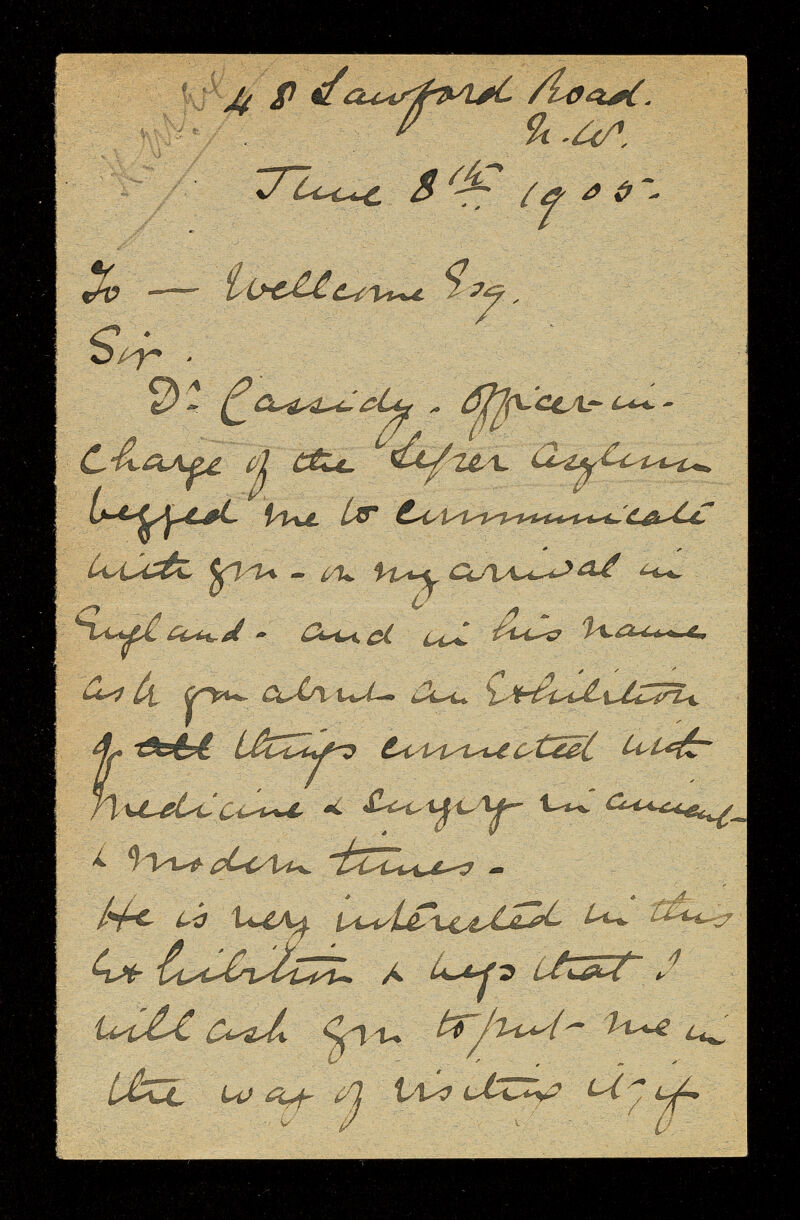 H.M.Ex
48 Lawford Road.
N.W.
June 8th 1905.
To — Wellcome Esq.
Sir.
Dr. Cassidy. Officer-in-
Charge of the Leper Asylum
begged me to communicate
with you - on my arrival in
England - and in his name
ask you about an Exhibition
of all things connected with
Medicine & Surgery in ancient
& modern times -
He is very interested in this
Exhibition & begs that I
will ask you to put me in
the way of visiting it, if